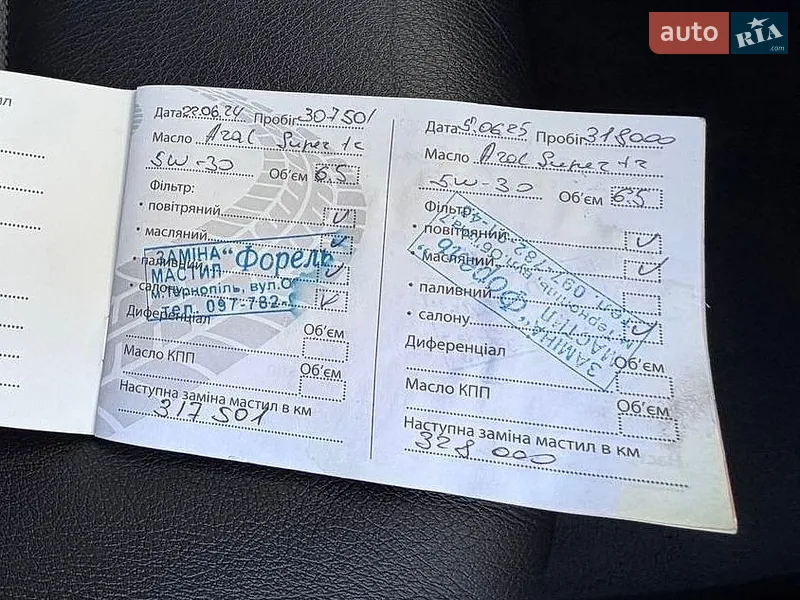 auto RIA .com
Дата 22.06.24 Пробіг 307501
Масло Aral Super tr
5W-30 Об'єм 6.5
Фільтр:
• повітряний
• масляний
• паливний
• салону
ЗАМІНА "Форель
МАСТИЛ
м.Тернопіль, вул.О
тел. 097-782-
Диференціал
Об'єм
Масло КПП
Об'єм
Наступна заміна мастил в км
317 501
Дата 5.06.25 Пробіг 318000
Масло Aral Super tr
5W-30 Об'єм 6.5
Фільтр:
• повітряний
• масляний
• паливний
• салону
ЗАМІНА "Форель"
МАСТИЛ
Диференціал
Об'єм
Масло КПП
Об'єм
Наступна заміна мастил в км
328 000